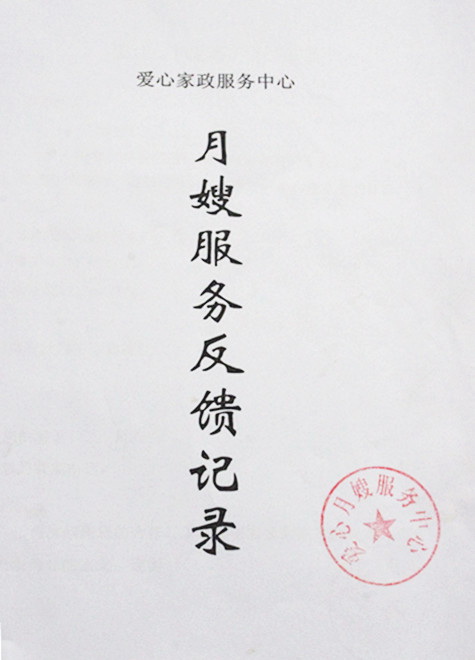 爱心家政服务中心
月嫂服务反馈记录
爱心月嫂服务中心